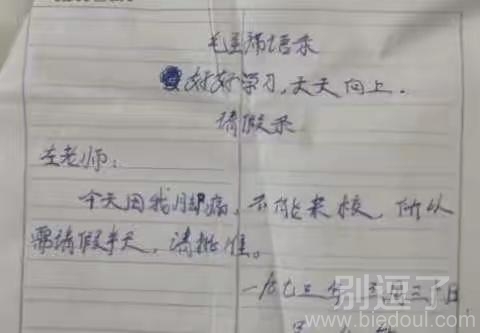 毛主席语录
好好学习,天天向上.
请假条
左老师:
今天因我月胡痛,不能来校,所以
需请假半天,请批准。
一九七三年三月三日
别逗了
www.biedoul.com